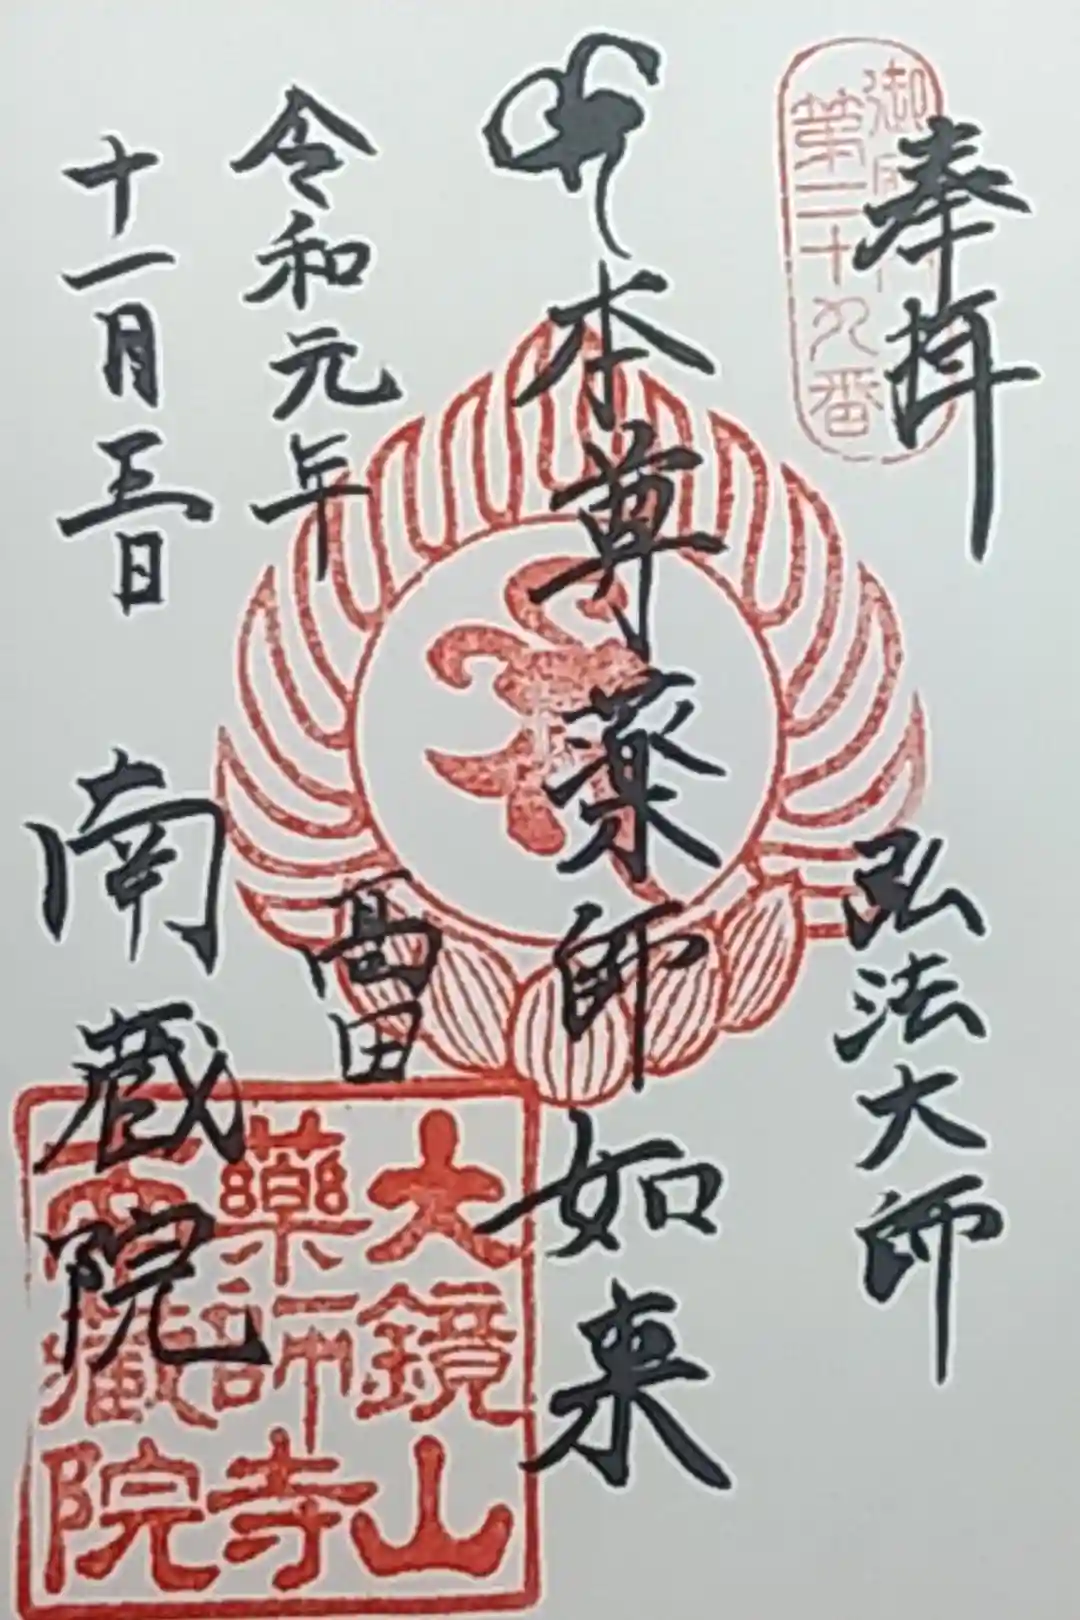 奉拝
弘法大師
本尊薬師如来
令和元年
高田
十一月三日
南蔵院
第二十九番
大鏡山
薬師寺
南蔵院